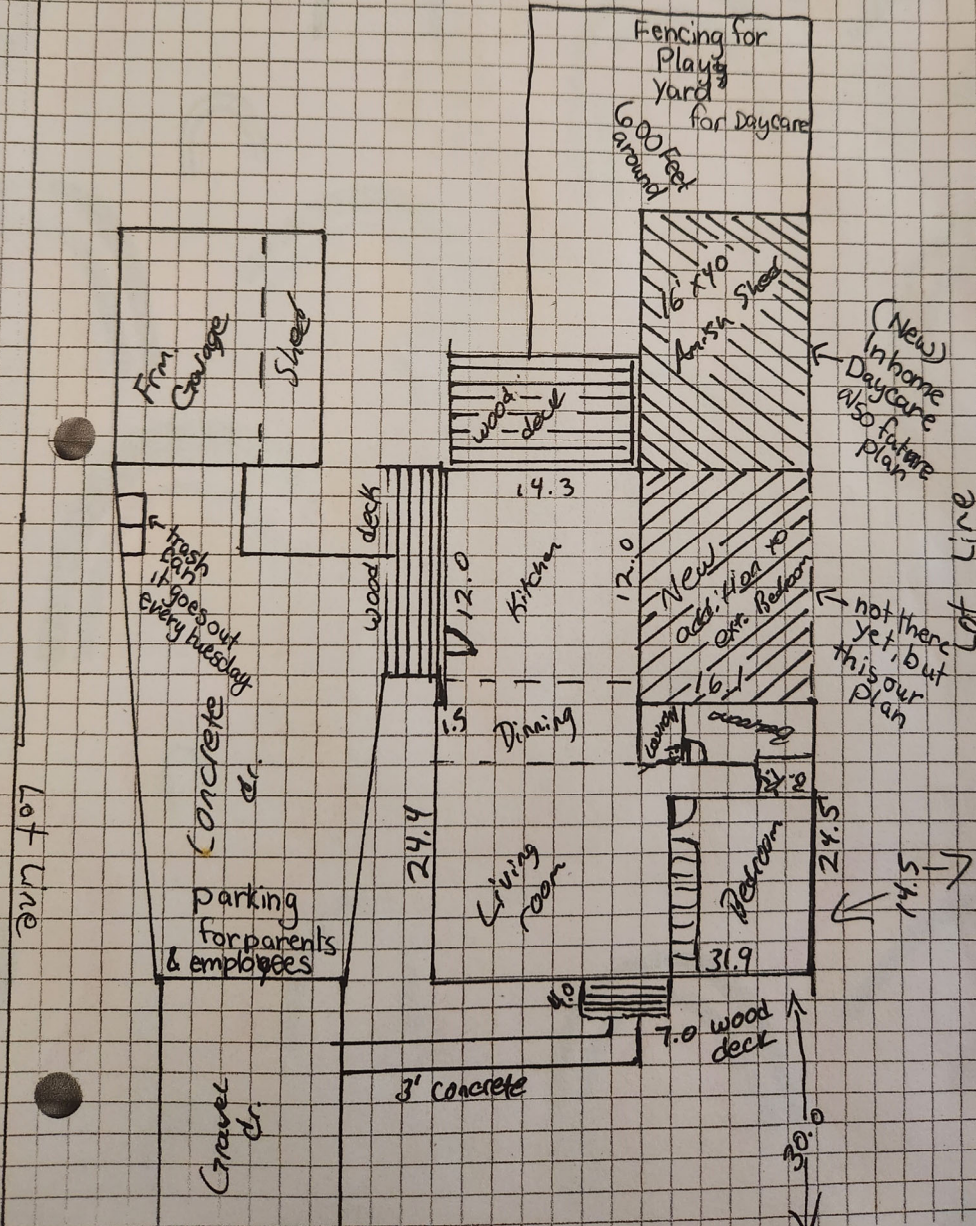 Fencing for
Play
Yard
for Daycare
600 Feet
around
16' x 40'
Amish Shed
(New)
In home
Daycare
also future
plan
Frm.
Garage
Shed
wood
deck
14.3
wood deck
12.0
Kitchen
12.0
New
addition to
ext. Bedroom
16.1
not there
yet, but
this our
plan
Lot Line
trash
can
it goes out
every tuesday
Concrete
dr.
1.5
Dinning
Laundry
24.4
Living
room
Bedroom
24.5
14.5
31.9
parking
for parents
& employees
Lot Line
4.0
7.0 wood
deck
3' concrete
Gravel
dr.
30.0